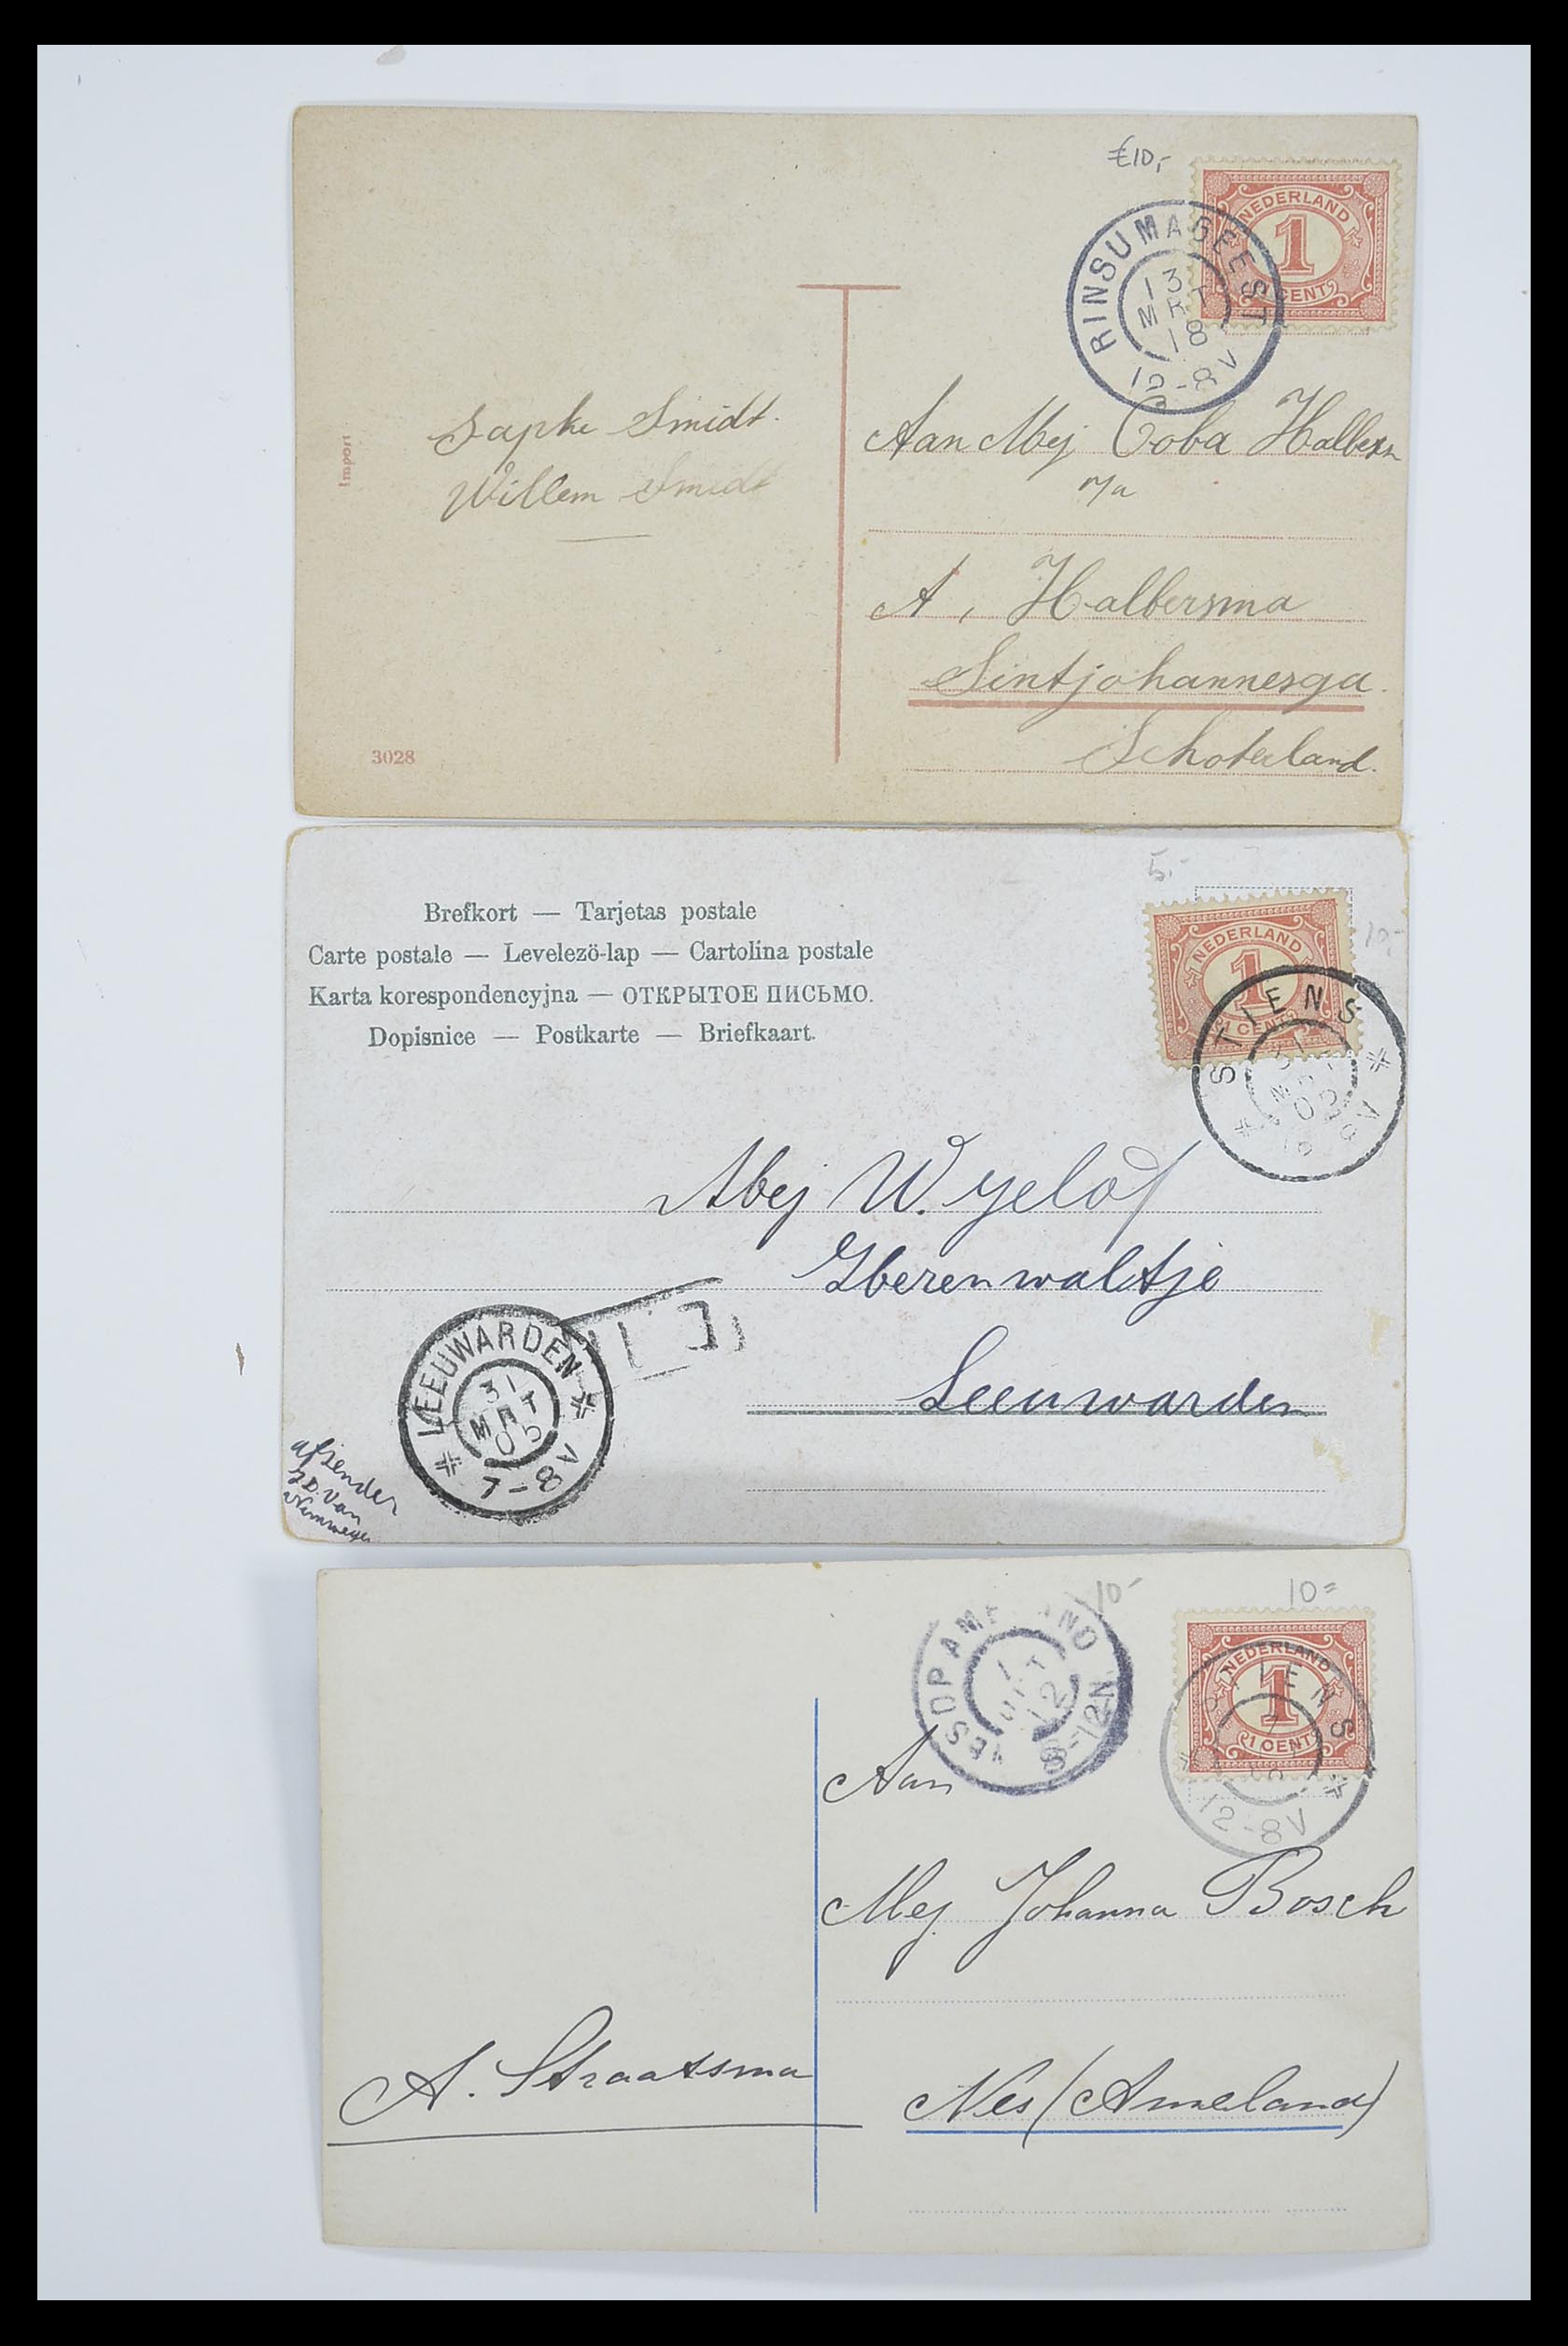 €10,-
NEDERLAND
1
CENT
RINSUMAGEEST
13
MRT
18
12-8V
Import
Sapke Smidt.
Willem Smidt
Aan Mej Coba Halbersma
p/a
A, Halbersma
Sintjohannesga.
Schoterland.
3028
5.-
10.-
Brefkort — Tarjetas postale
Carte postale — Levelező-lap — Cartolina postale
Karta korespondencyjna — ОТКРЫТОЕ ПИСЬМО.
Dopisnice — Postkarte — Briefkaart.
NEDERLAND
1
1 CENT
STIENS
31
Mej W. Yelof
Leeuwarden
LEEUWARDEN
31
MRT
05
7-8V
afzender
van
10-
10=
NEDERLAND
1
1 CENT
STIENS
12-8V
NES OP AMELAND
12
8-12N
Aan
Mej. Johanna Bosch
A. Straatsma
Nes (Ameland)